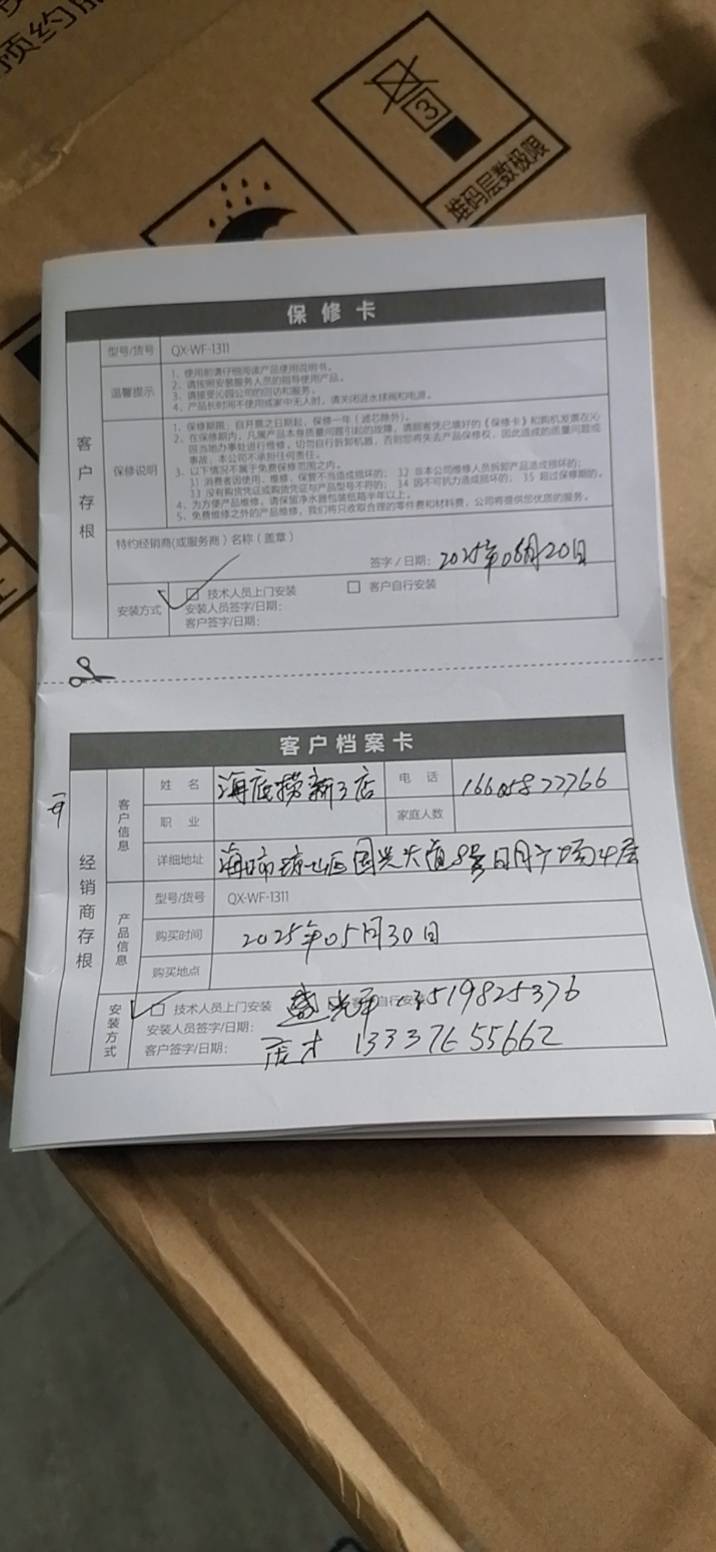 预约
3
堆码层数极限
保修卡
客户存根
型号/货号 QX-WF-1311
温馨提示
1、使用前请仔细阅读产品使用说明书。
2、请按照安装服务人员的指导使用产品。
3、请接受沁园公司的回访和服务。
4、产品长时间不使用或家中无人时，请关闭进水球阀和电源。
保修说明
1、保修期限：自开票之日期起，保修一年（滤芯除外）。
2、在保修期内，凡属产品本身质量问题引起的故障，请顾客凭已填好的《保修卡》和购机发票在沁
园当地办事处进行维修。切勿自行拆卸机器，否则您将失去产品保修权，因此造成的质量问题或
事故，本公司不承担任何责任。
3、以下情况不属于免费保修范围之内。
3.1 消费者因使用、维修、保管不当造成损坏的； 3.2 非本公司维修人员拆卸产品造成损坏的；
3.3 没有购货凭证或购货凭证与产品型号不符的； 3.4 因不可抗力造成损坏的； 3.5 超过保修期的。
4、为方便产品维修，请保留净水器包装纸箱半年以上。
5、免费维修之外的产品维修，我们将只收取合理的零件费和材料费，公司将提供您优质的服务。
特约经销商(或服务商）名称（盖章）
签字/日期： 2025年06月20日
安装方式 技术人员上门安装 客户自行安装
安装人员签字/日期：
客户签字/日期：
客户档案卡
经销商存根
客户信息
姓 名 海底捞新3店 电 话
职 业 家庭人数
详细地址 国兴大道8号日月广场4层
产品信息
型号/货号 QX-WF-1311
购买时间 2025年05月30日
购买地点
安装方式
技术人员上门安装 客户自行安装 13519825376
安装人员签字/日期：
客户签字/日期： 13337655662